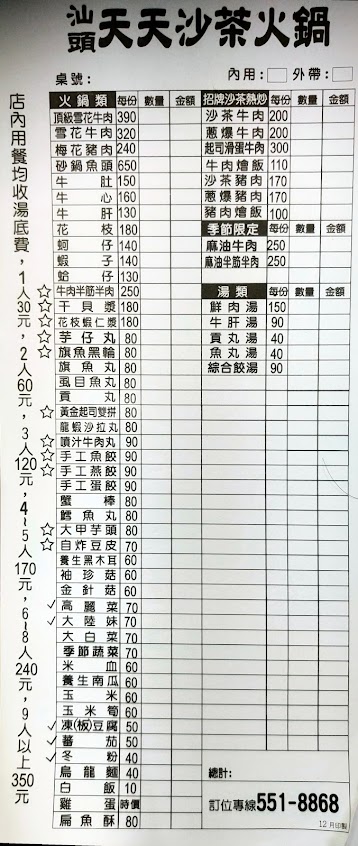 汕頭天天沙茶火鍋
桌號： 內用： 外帶：
店內用餐均收湯底費，1人30元，2人60元，3人120元，4~5人170元，6~8人240元，9人以上350元
火鍋類 每份 數量 金額
頂級雪花牛肉 390
雪花牛肉 320
梅花豬肉 240
砂鍋魚頭 650
牛肚 150
牛心 160
牛肝 130
花枝 180
蚵仔 140
蝦子 140
蛤仔 130
☆ 牛肉半筋半肉 250
☆ 干貝漿 180
☆ 花枝蝦仁漿 180
☆ 芋仔丸 80
☆ 旗魚黑輪 80
旗魚丸 80
虱目魚丸 80
貢丸 80
☆ 黃金起司雙拼 80
龍蝦沙拉丸 80
☆ 噴汁牛肉丸 90
☆ 手工魚餃 90
☆ 手工燕餃 90
手工蛋餃 90
蟹棒 80
鱈魚丸 80
☆ 大甲芋頭 80
☆ 自炸豆皮 70
養生黑木耳 60
袖珍菇 60
金針菇 60
✓ 高麗菜 70
✓ 大陸妹 70
大白菜 70
季節蔬菜 70
米血 60
養生南瓜 60
玉米 60
玉米筍 60
✓ 凍(板)豆腐 50
✓ 蕃茄 50
✓ 冬粉 40
烏龍麵 40
白飯 10
雞蛋 時價
扁魚酥 80
招牌沙茶熱炒 每份 數量 金額
沙茶牛肉 200
蔥爆牛肉 200
起司滑蛋牛肉 300
牛肉燴飯 110
沙茶豬肉 170
蔥爆豬肉 170
豬肉燴飯 100
季節限定 每份 數量 金額
麻油牛肉 250
麻油半筋半肉 250
湯類 每份 數量 金額
鮮肉湯 150
牛肝湯 90
貢丸湯 40
魚丸湯 40
綜合餃湯 90
總計：
訂位專線551-8868
12月印製